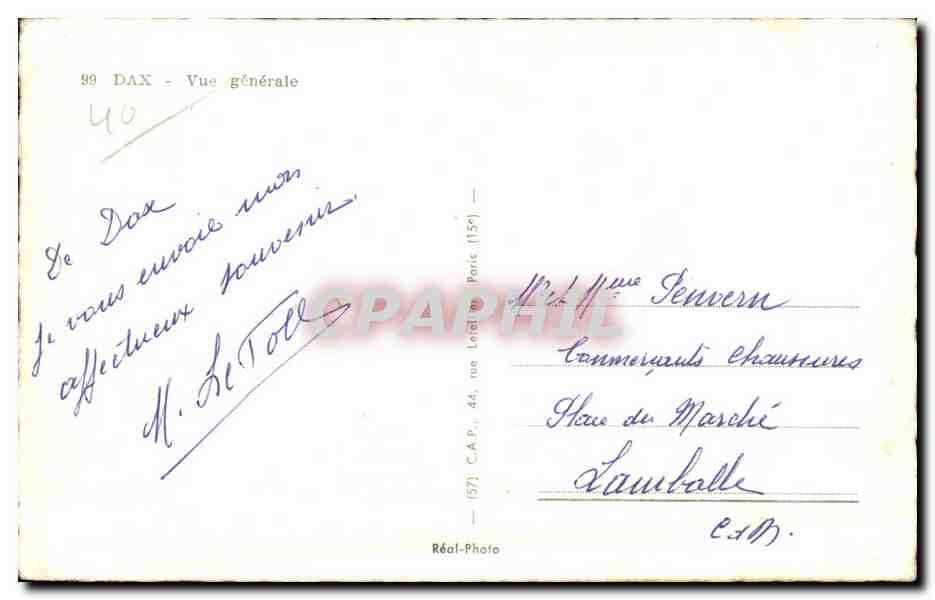 99 DAX - Vue générale
40
De Dax
je vous envoie mon
affectueux souvenir.
M. Le Toll
— (57) C.A.P., 44, rue Letellier, Paris (15e) —
Mr et Mme Penvern
Commerçants Chaussures
Place du Marché
Lamballe
C d N.
Réal-Photo
CPAPHIL